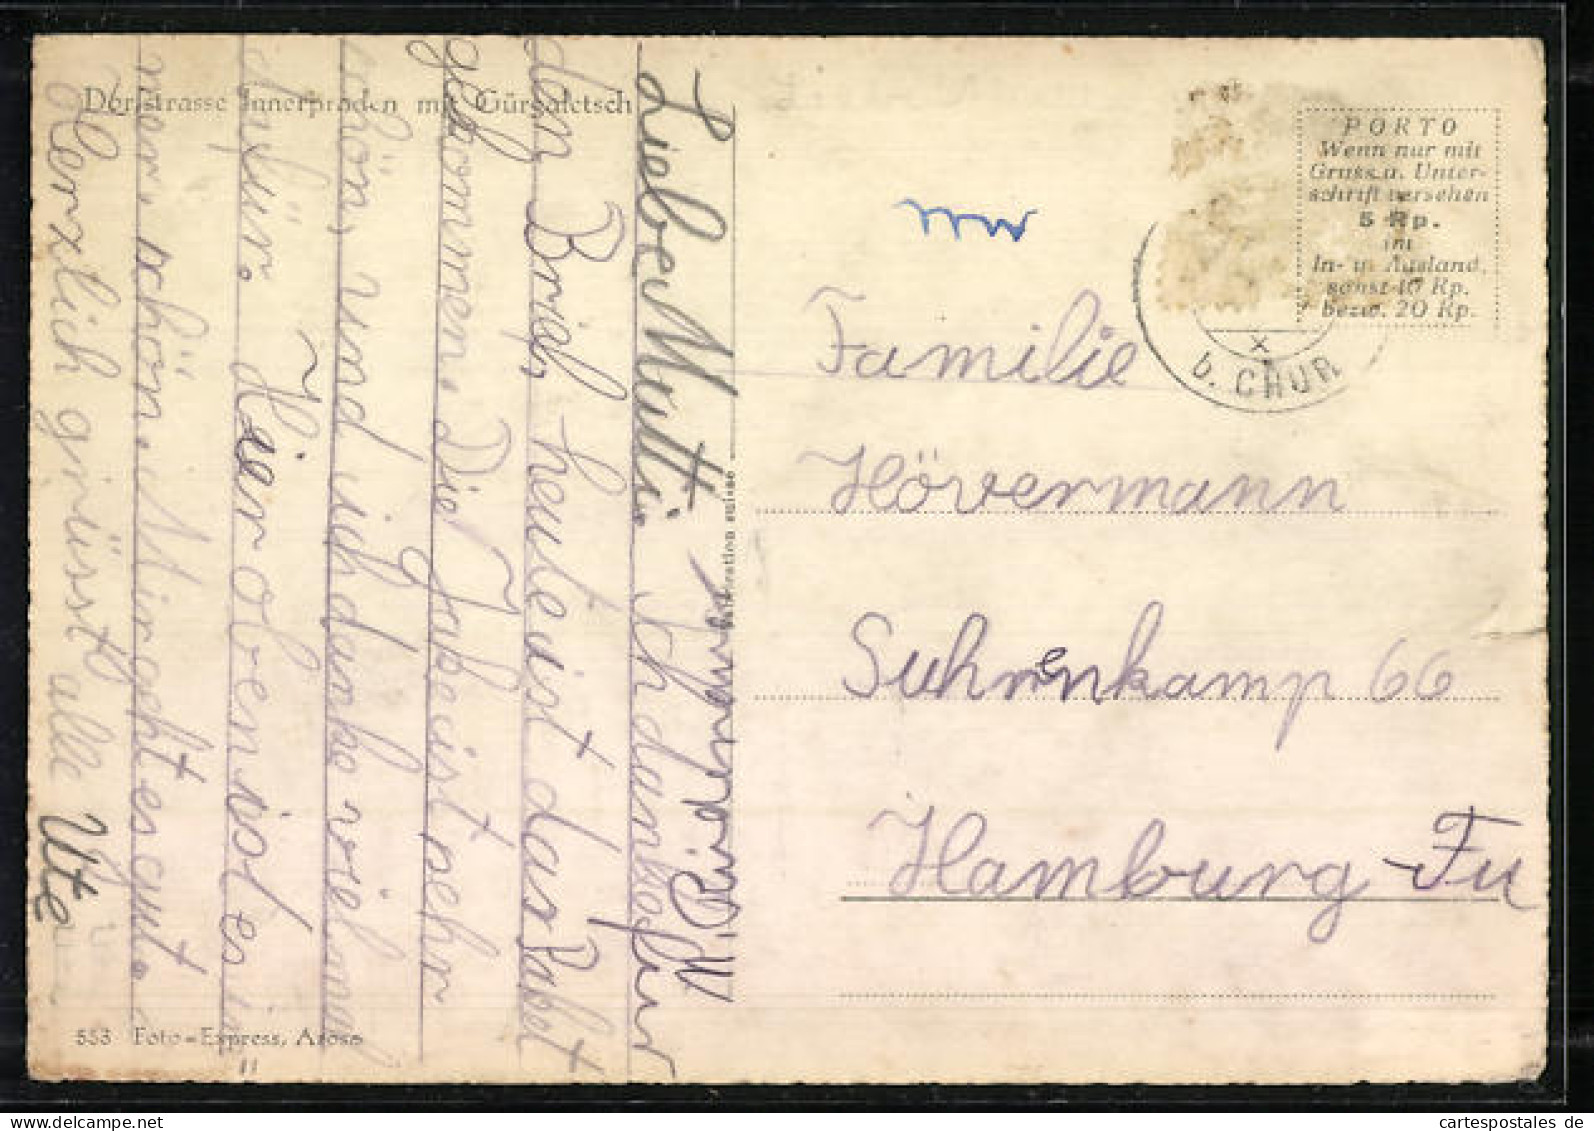 Dorfstrasse Innerpraden mit Gürgaletsch
Liebe Mutti. Ich danke für
den Brief, heute ist das Paket
gekommen. Die Farbe ist sehr
schön, und ich danke vielmal
dafür. Hier oben ist es
sehr schön. Mir geht es gut.
Herzlich grüsst alle Ute
553 Foto-Express, Arosa
PORTO
Wenn nur mit
Gruss u. Unter-
schrift versehen
5 Rp.
im
In- u. Ausland,
sonst 10 Rp.
bezw. 20 Rp.
b. CHUR
Familie
Hövermann
Suhrenkamp 66
Hamburg Fu
cartespostales de